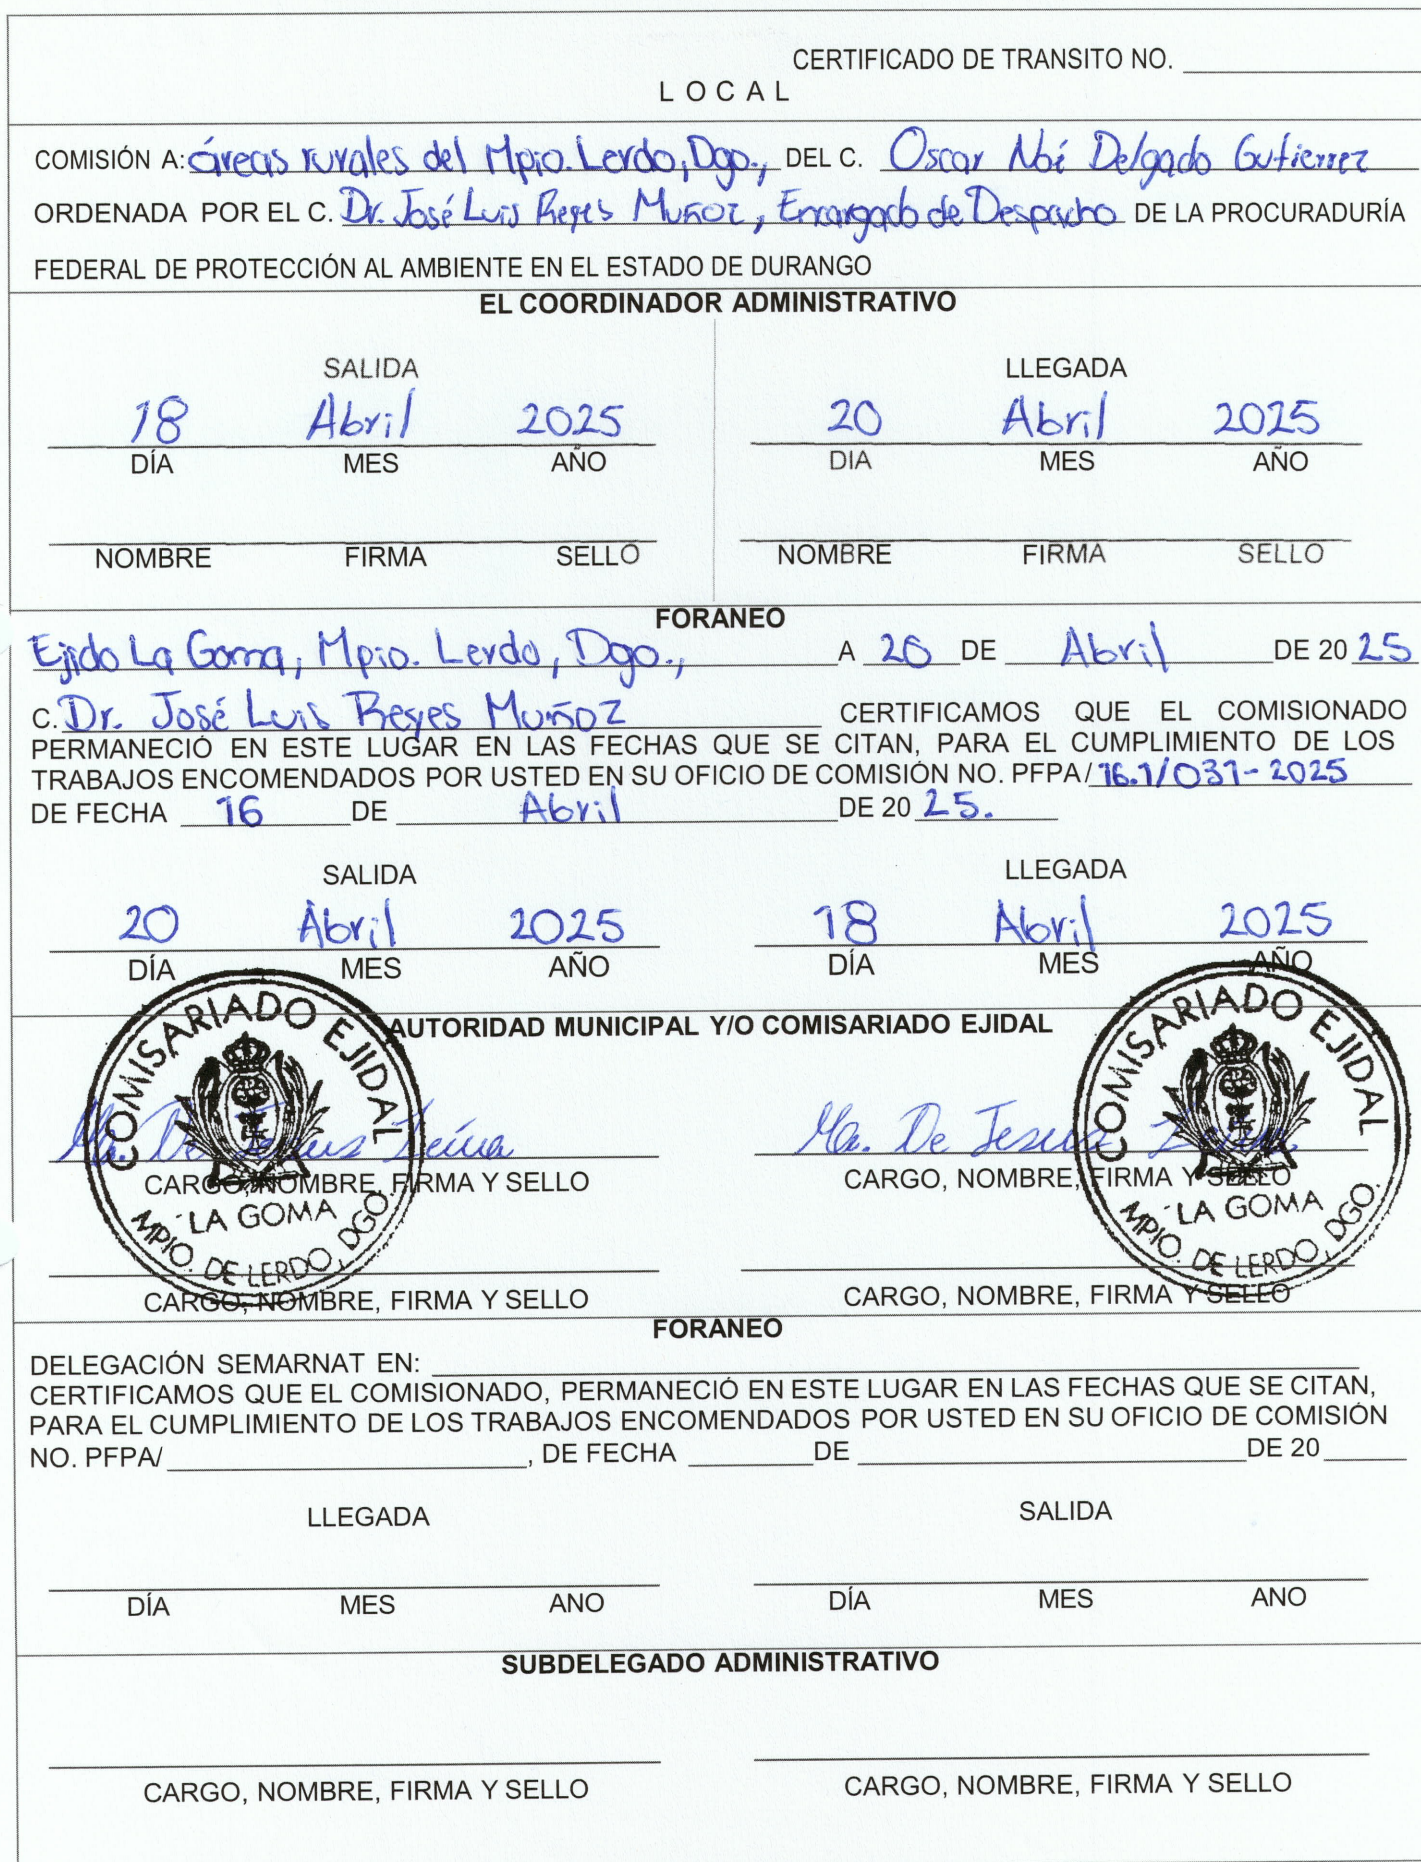 CERTIFICADO DE TRANSITO NO.
LOCAL
COMISIÓN A: áreas rurales del Mpio. Lerdo, Dgo., DEL C. Oscar Noé Delgado Gutierrez
ORDENADA POR EL C. Dr. José Luis Reyes Muñoz, Encargado de Despacho DE LA PROCURADURÍA
FEDERAL DE PROTECCIÓN AL AMBIENTE EN EL ESTADO DE DURANGO
EL COORDINADOR ADMINISTRATIVO
SALIDA LLEGADA
18 Abril 2025 20 Abril 2025
DÍA MES AÑO DIA MES AÑO
NOMBRE FIRMA SELLO NOMBRE FIRMA SELLO
FORANEO
Ejido La Goma, Mpio. Lerdo, Dgo., A 20 DE Abril DE 2025
C. Dr. José Luis Reyes Muñoz CERTIFICAMOS QUE EL COMISIONADO
PERMANECIÓ EN ESTE LUGAR EN LAS FECHAS QUE SE CITAN, PARA EL CUMPLIMIENTO DE LOS
TRABAJOS ENCOMENDADOS POR USTED EN SU OFICIO DE COMISIÓN NO. PFPA/16.1/031-2025
DE FECHA 16 DE Abril DE 2025.
SALIDA LLEGADA
20 Abril 2025 18 Abril 2025
DÍA MES AÑO DÍA MES AÑO
AUTORIDAD MUNICIPAL Y/O COMISARIADO EJIDAL
COMISARIADO EJIDAL COMISARIADO EJIDAL
Ma. De Jesus Ma. De Jesus
CARGO, NOMBRE, FIRMA Y SELLO CARGO, NOMBRE, FIRMA Y SELLO
LA GOMA LA GOMA
MPIO. DE LERDO, DGO. MPIO. DE LERDO, DGO.
CARGO, NOMBRE, FIRMA Y SELLO CARGO, NOMBRE, FIRMA Y SELLO
FORANEO
DELEGACIÓN SEMARNAT EN:
CERTIFICAMOS QUE EL COMISIONADO, PERMANECIÓ EN ESTE LUGAR EN LAS FECHAS QUE SE CITAN,
PARA EL CUMPLIMIENTO DE LOS TRABAJOS ENCOMENDADOS POR USTED EN SU OFICIO DE COMISIÓN
NO. PFPA/ , DE FECHA DE DE 20
LLEGADA SALIDA
DÍA MES ANO DÍA MES ANO
SUBDELEGADO ADMINISTRATIVO
CARGO, NOMBRE, FIRMA Y SELLO CARGO, NOMBRE, FIRMA Y SELLO